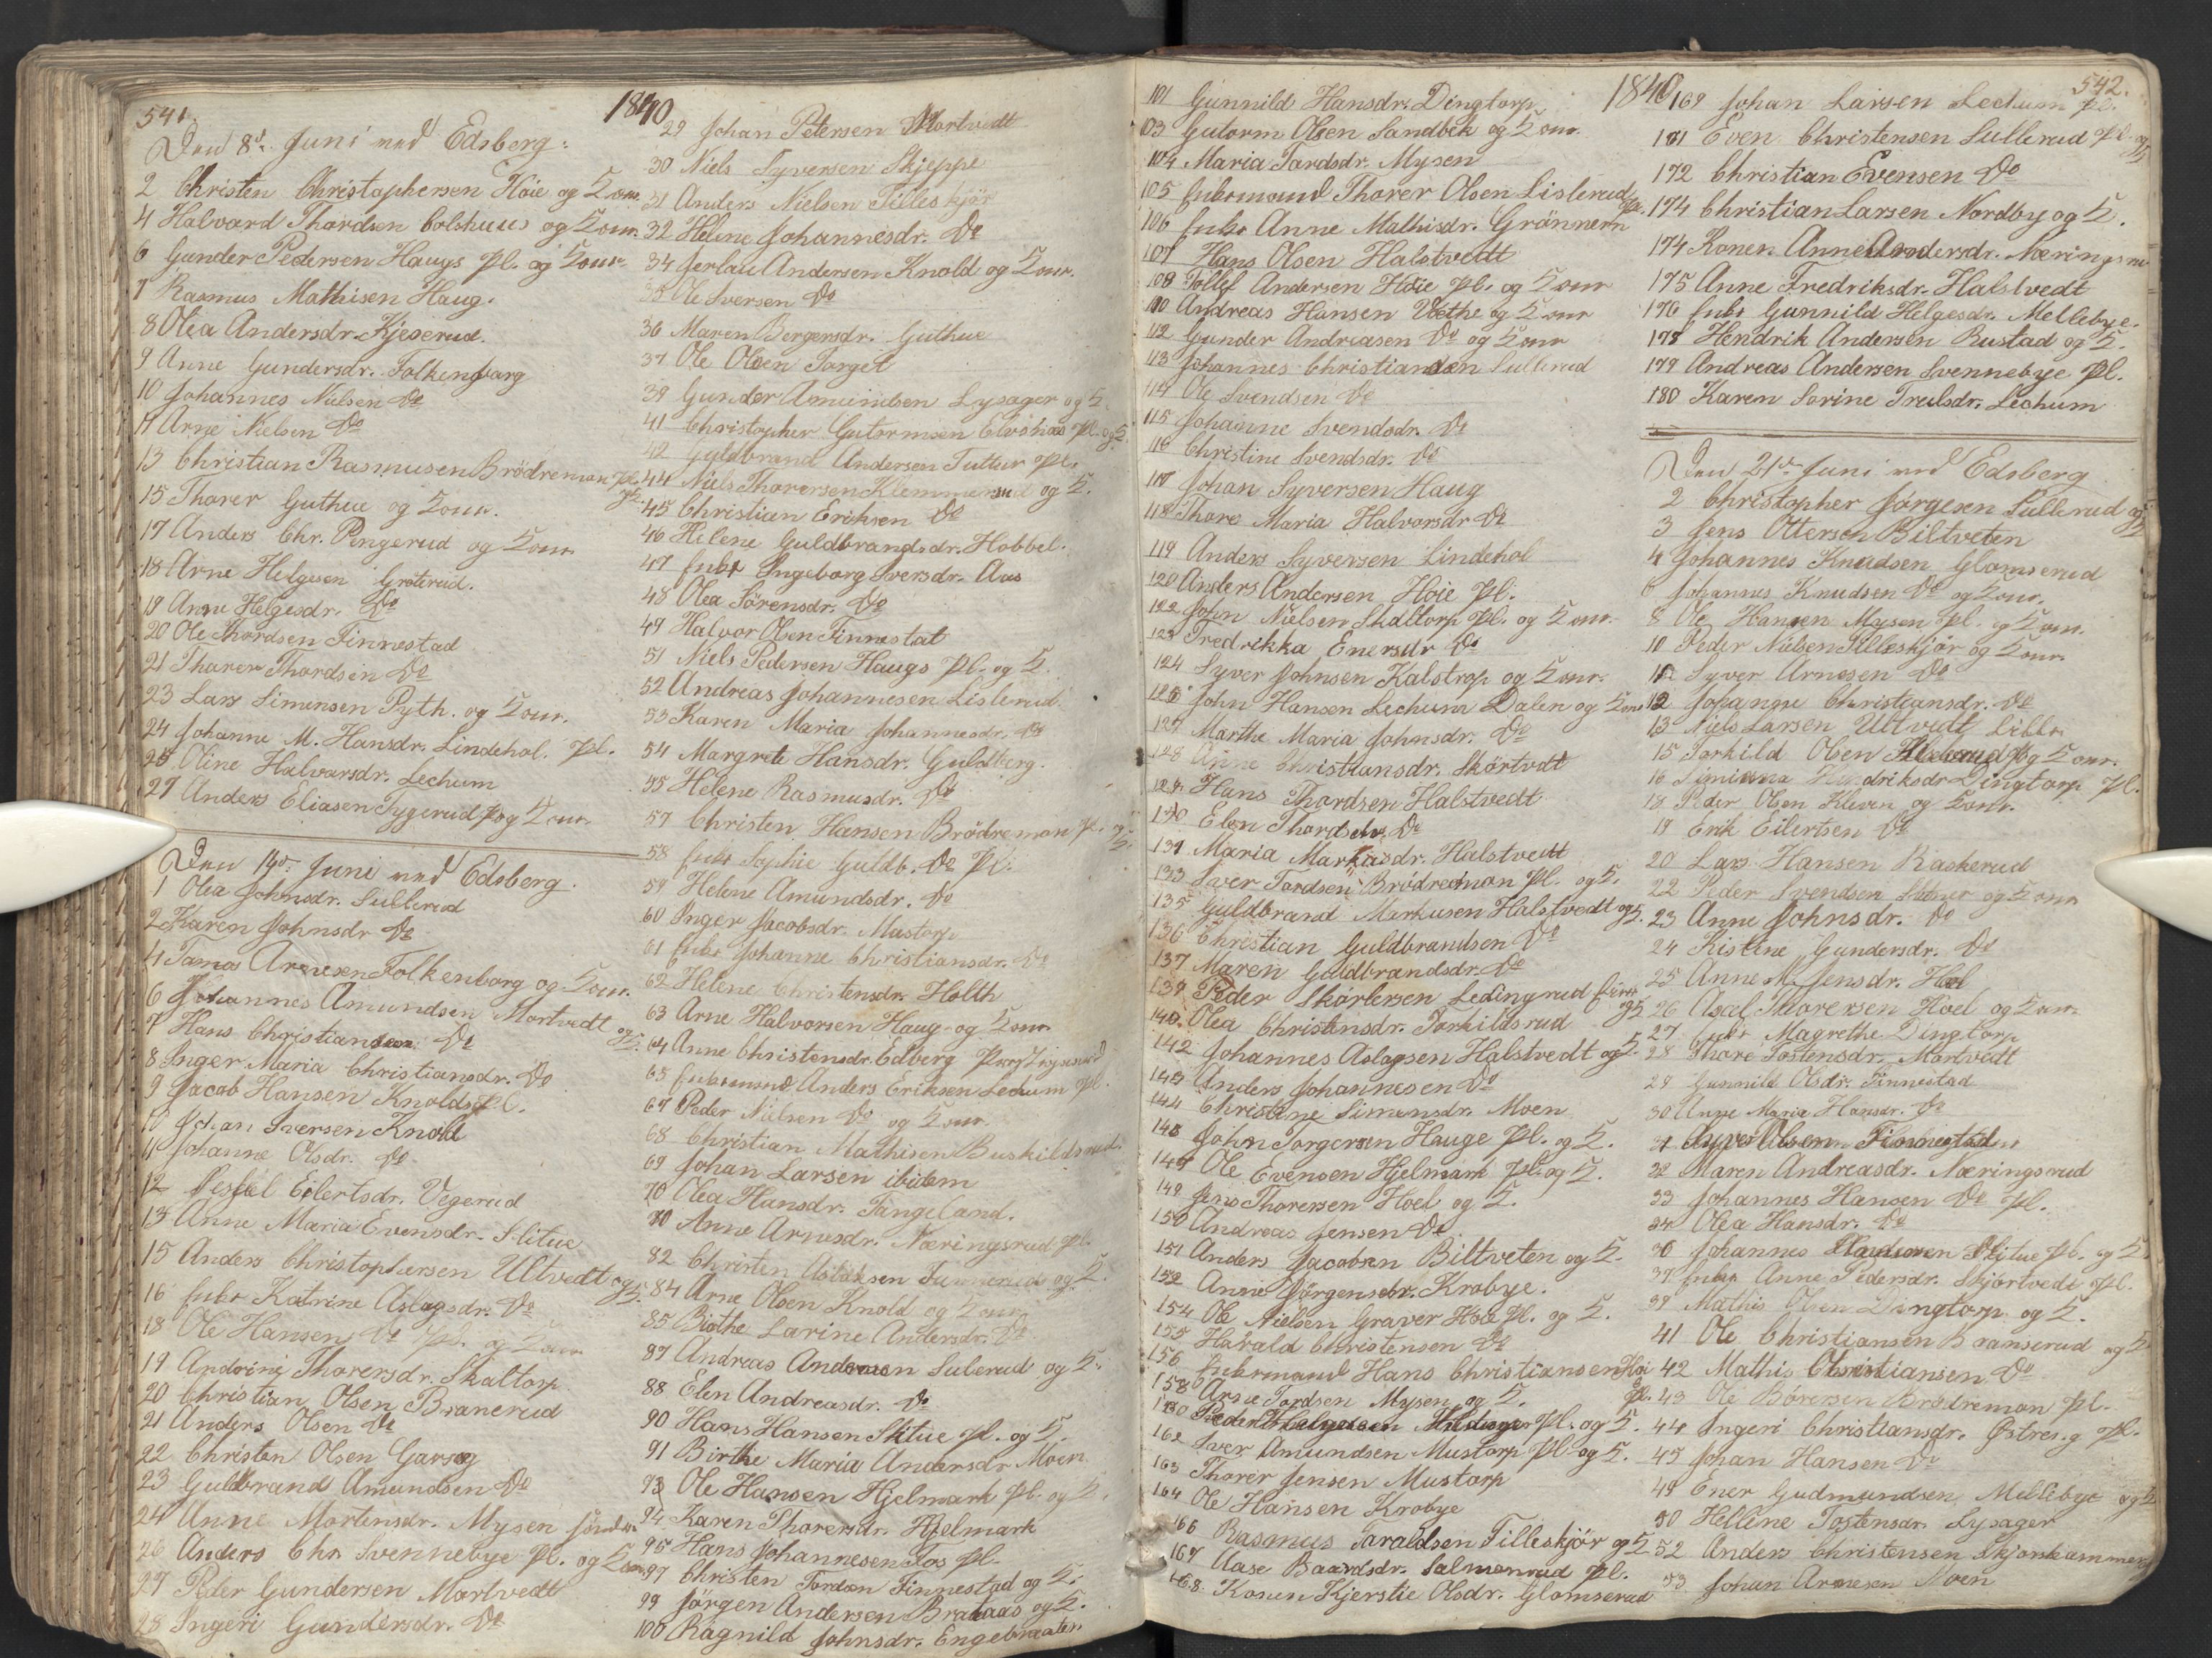 541.
1840
Den 8de Juni ved Edsberg:
2 Christen Christophersen Höie og Zour.
4 Halvord Thordsen Colshuus og Zour.
6 Gunder Pedersen Haugs Pl. og Zour.
7 Rasmus Mathisen Haug.
8 Olea Andersdr. Kjeserud.
9 Anne Gundersdr. Folkenborg
10 Johannes Nielsen Do
11 Arne Nielsen Do
13 Christian Rasmusen Brödremon Pl. og Z.
15 Thorer Guthue og Zour.
17 Anders Chr. Pengerud og Zour.
18 Arne Helgesen Groterud.
19 Anne Helgesdr. Do
20 Ole Thordsen Finnestad
21 Thorer Thordsen Do
23 Lars Simensen Pyth. og Zour.
24 Johanne M. Hansdr. Lindehol. Pl.
25 Oline Halvorsdr. Lechum
27 Anders Eliasen Tygerud Pl og Zour.
Den 14de Juni ved Edsberg.
1 Olea Johnsdr. Sullerud
2 Karen Johnsdr Do
4 Tamos Arnesen Folkenborg og Zour.
6 Johannes Amundsen Mortvedt og Z.
7 Hans Christiansen Do
8 Inger Maria Christiansdr. Do
9 Jacob Hansen Knolds Pl.
10 Johan Iversen Knold
11 Johanne Olsdr. Do
12 Eilertsdr. Vegerud
13 Anne Maria Evensdr. Slitue
15 Anders Christophersen Ultvedt og Z.
16 Enke Katrine Aslagsdr. Do
18 Ole Hansen Do Pl. og Zour
19 Andrine Thorersdr. Skaltorp
20 Christian Olsen Branerud
21 Anders Olsen Do
22 Christen Olsen Garseg
23 Guldbrand Amundsen Do
24 Anne Mortensdr. Mysen
26 Anders Chr. Svennebye Pl. og Zour
27 Peder Gundersen Mortvedt
28 Ingeri Gundersdr. Do
29 Johan Petersen Mortvedt
30 Niels Syversen Skjeppe
31 Anders Nielsen Tilleskjör
32 Helene Johannesdr. Do
34 Andersen Knold og Zour.
35 Ole Iversen Do
36 Maren Borgersdr. Guthue
37 Ole Olsen Torget
39 Gunder Amundsen Lysager og Z.
41 Christopher Gutormsen Elvshaas Pl. og Z.
42 Guldbrand Andersen Tuttur Pl.
44 Niels Thorersen Klemmersud og Z.
45 Christian Eriksen Do
46 Helene Guldbrandsdr. Hobbel.
47 Enke Ingeborg Iversdr. Aas
48 Olea Sörensdr. Do
49 Halvor Olsen Finnestat
51 Niels Pedersen Haugs Pl. og Z.
52 Andreas Johannesen Lislerud
53 Karen Maria Johannesdr. Do
54 Margrete Hansdr. Guldberg.
55 Helene Rasmusdr. Do
57 Christen Hansen Brödremon Pl. og Z.
58 Enke Sophie Guldb. Do Pl.
59 Helene Amundsdr. Do
60 Inger Jacobsdr. Mastorp
61 Enke Johanne Christiansdr. Do
62 Helene Christensdr. Holth
63 Arne Halvorsen Haug og Zour.
64 Anne Christensdr. Edberg
65 Enkemand Anders Eriksen Lechum Pl.
67 Peder Nielsen Do og Zour.
68 Christian Mathisen Buskildsrud.
69 Johan Larsen ibidem
70 Olea Hansdr. Tangeland.
80 Anne Arnesdr. Næringsrud Pl.
82 Christen Aslaksen og Z.
84 Arne Olsen Knold og Zour
85 Birthe Larine Andersdr. Do
87 Andreas Andersen Sulerud og Z.
88 Elen Andreasdr. Do
90 Hans Hansen Slitue Pl. og Z.
91 Birthe Maria Andersdr Moen
93 Ole Hansen Hjelmark Pl. og Z.
94 Karen Thorersdr. Hjelmark
95 Hans Johannesen Fos Pl.
97 Christen Tordsen Finnestad og Z.
99 Jörgen Andersen Brataas og Z.
100 Ragnild Johnsdr. Engebraaten
1840
542.
101 Gunnild Hansdr. Dingtorp
103 Gutorm Olsen Sandbek og Zour.
104 Maria Tordsdr. Mysen
105 Enkemand Thorer Olsen Lislerud Pl.
106 Enke Anne Mathisdr. Grönnern
107 Hans Olsen Halstvedt
108 Tollef Andersen Höie Pl. og Zour
110 Andreas Hansen Vethe og Zour
112 Gunder Andreasen Do og Zour
113 Johannes Christiansen Sullerud
114 Ole Svendsen Do
115 Johanne Svendsdr. Do
116 Christine Svendsdr. Do
117 Johan Syversen Haug
118 Thore Maria Halvorsdr Do
119 Anders Syversen Lindehol
120 Anders Andersen Höie Pl.
122 John Nielsen Skaltorp Pl. og Zour.
123 Fredrikka Enersdr Do
124 Syver Johnsen Kalstrop og Zour.
126 John Hansen Lechum Dalen og Zour
127 Marthe Maria Johnsdr. Do
128 Anne Christiansdr. Skörtvdt
129 Hans Thordsen Halstvedt
130 Elen Thordsdr. Do
131 Maria Markusdr. Halstvedt
133 Iver Tordsen Brödremon Pl. og Z.
135 Guldbrand Markusen Halstvedt og Z.
136 Christian Guldbrandsen Do
137 Maren Guldbrandsdr. Do
139 Peder Ledingrud og Z
140 Olea Christensdr. Torkildsrud
142 Johannes Aslagsen Halstvedt og Z.
143 Anders Johannesen Do
144 Christine Simensdr. Moen
146 John Torgersen Hauge Pl. og Z.
147 Ole Evensen Hjelmark Pl. og Z.
149 Jens Thorersen Hoel og Z.
150 Andreas Jensen Do
151 Anders Jacobsen Biltveten og Z.
152 Anne Jörgensdr. Krobye.
154 Ole Nielsen Graver Höie Pl. og Z.
155 Harald Christensen Do
156 Enkemand Hans Christiansen Höie Pl.
158 Arne Tordsen Mysen og Z.
160 Peder Helgesen Pl. og Z.
162 Iver Amundsen Mustorp Pl og Z.
163 Thorer Jensen Mustorp
164 Ole Hansen Krobye
166 Rasmus Taraldsen Tilleskjör og Z
167 Aase Baardsdr. Salmonrud Pl.
168 Konen Kjerstie Olsdr. Glomserud
169 Johan Larsen Lechum Pl.
171 Even Christensen Sullerud Pl. og Z
172 Christian Evensen Do
174 Christian Larsen Nordby og Z.
174 Konen Anne Andersdr. Næringsru
175 Anne Fredriksdr. Halstvedt
176 Enke Gunnild Helgesdr. Mellebye.
178 Hendrik Andersen Rustad og Z.
179 Andreas Andersen Svennebye Pl.
180 Karen Sorine Trulsdr. Lechum
Den 21de Juni ved Edsberg
2 Christopher Jörgesen Sullerud og Z
3 Jens Ottersen Biltveten
4 Johannes Knudsen Glomserud
6 Johannes Knudsen Do og Zour.
8 Ole Hansen Mysen Pl. og Zour.
10 Peder Nielsen Tilleskjör og Zour.
11 Syver Arnesen Do
12 Johanne Christiansdr. Do
13 Niels Larsen Ultvedt Lille
15 Torkild Olsen og Zour.
16 Hendriksdr Dingtorp Pl.
18 Peder Olsen Kleven og Zour.
19 Erik Eilertsen Do
20 Lars Hansen Raskerud
22 Peder Svendsen og Zour
23 Anne Johnsdr. Do
24 Kistine Gundersdr. Do
25 Anne M. Jensdr. Hoel
26 Axel Thorersen Hoel og Zour.
27 Enke Magrethe Dingtorp
28 Thore Tostensdr. Mortvedt
29 Gunnild Olsdr. Finnestad
30 Anne Maria Hansdr. Do
31 Syver Olsen Finnestad
32 Maren Andreasdr. Næringsrud
33 Johannes Hansen Do Pl.
34 Olea Hansdr. Do
36 Johannes Slitue Pl. og Z
37 Enke Anne Pedersdr. Skjörtvedt Pl.
39 Mathis Olsen Dingtorp og Z.
41 Ole Christiansen Branserud og Z
42 Mathis Christiansen Do
43 Ole Börersen Brödremon Pl.
44 Ingeri Christiansdr. Östreng Pl.
45 Johan Hansen Do
49 Ener Gudmundsen Mellebye og Z
50 Hellene Tostensdr. Lysager
52 Anders Christensen Skjorshammer
53 Johan Arnesen Moen